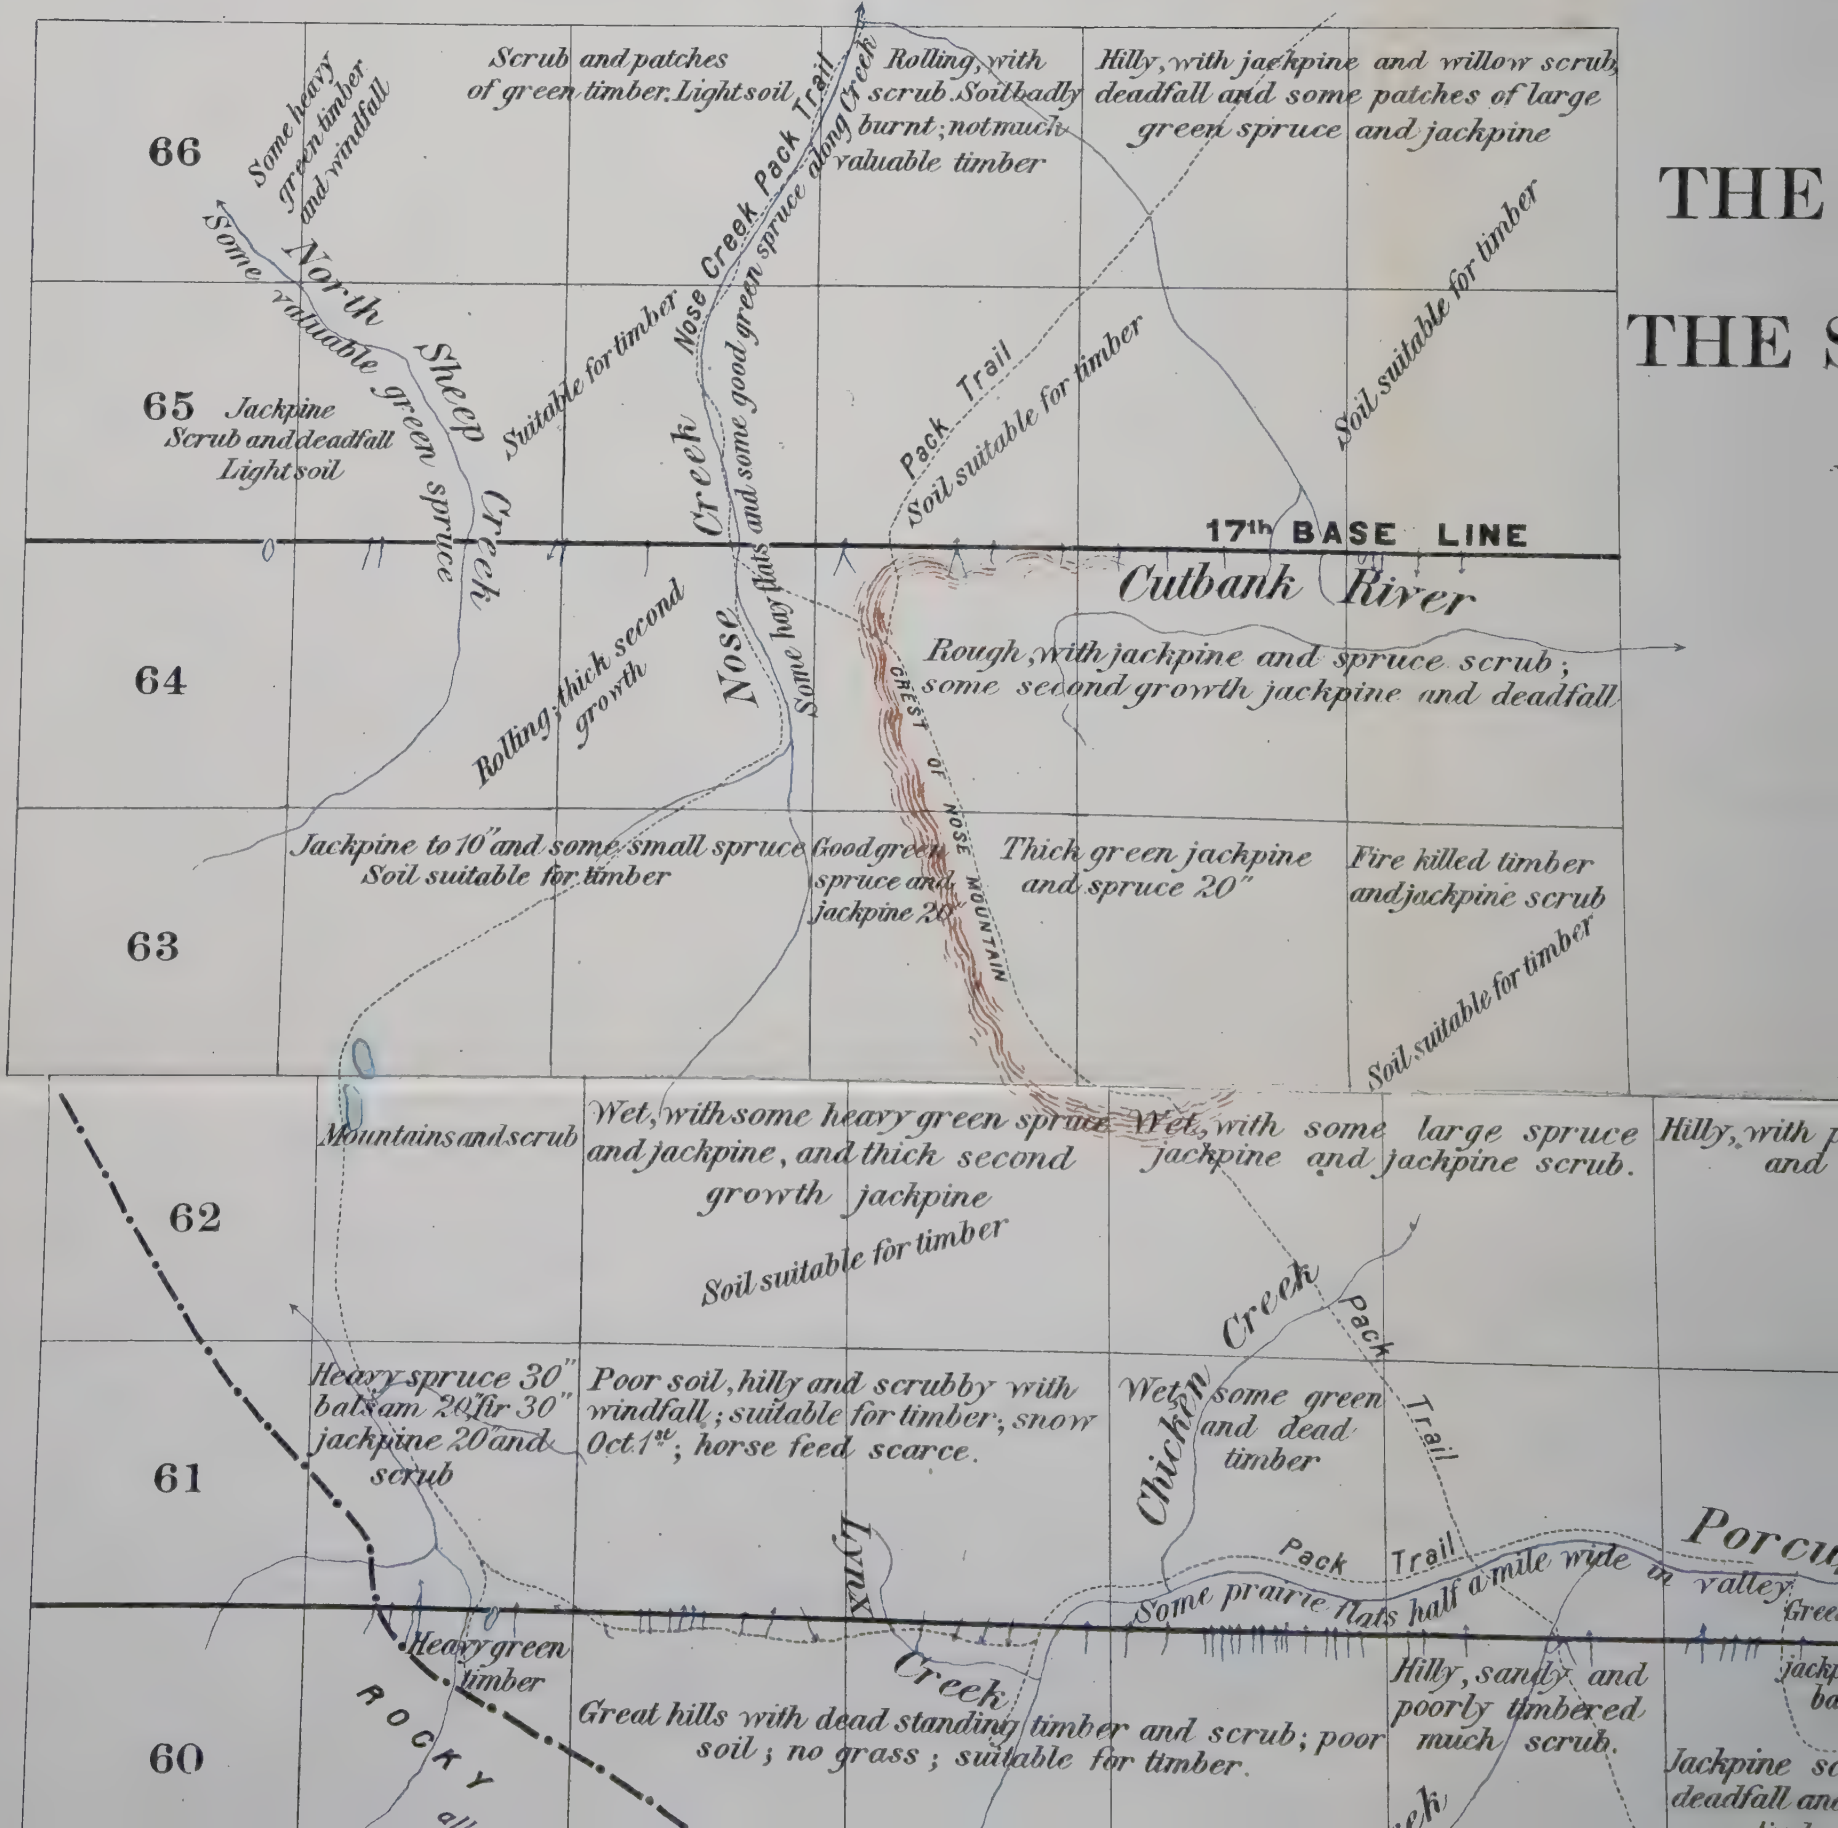 THE
THE S
66
Some heavy
green timber
and windfall
Scrub and patches
of green timber. Light soil
Nose Creek Pack Trail
Rolling, with
scrub. Soil badly
burnt; not much
valuable timber
Hilly, with jackpine and willow scrub,
deadfall and some patches of large
green spruce and jackpine
North Sheep Creek
Some valuable green spruce
65
Jackpine
Scrub and deadfall
Light soil
Suitable for timber
Nose Creek
Some hay flats and some good green spruce along Creek
Pack Trail
Soil suitable for timber
Soil suitable for timber
17th BASE LINE
Cutbank River
64
Rolling, thick second
growth
Rough, with jackpine and spruce scrub;
some second growth jackpine and deadfall
CREST OF NOSE MOUNTAIN
63
Jackpine to 10" and some small spruce
Soil suitable for timber
Good green
spruce and
jackpine 20"
Thick green jackpine
and spruce 20"
Fire killed timber
and jackpine scrub
Soil suitable for timber
62
Mountains and scrub
Wet, with some heavy green spruce
and jackpine, and thick second
growth jackpine
Soil suitable for timber
Wet, with some large spruce
jackpine and jackpine scrub.
Hilly, with p
and
Chicken Creek
Pack Trail
61
Heavy spruce 30"
balsam 20", fir 30"
jackpine 20" and
scrub
Poor soil, hilly and scrubby with
windfall; suitable for timber; snow
Oct. 1st; horse feed scarce.
Wet, some green
and dead
timber
Lynx Creek
Pack Trail
Porcu
Some prairie flats half a mile wide in valley
Gree
60
Heavy green
timber
ROCKY
all
Great hills with dead standing timber and scrub; poor
soil; no grass; suitable for timber.
Hilly, sandy and
poorly timbered
much scrub.
jackp
ba
Jackpine sc
deadfall and
eek